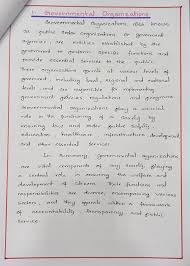 1. Governmental Organizations
Governmental Organizations also known
as public sector organizations or government
agencies are entities established by the
government to perform specific functions and
provide essential services to the public.
These organizations operate at various levels of
government including local, regional and national
and are responsible for implementing
government policies, regulations and programs.
Governmental Organizations play a crucial
role in the functioning of a society by
ensuring law and order public safety,
education, healthcare infrastructure development
and other essential services.
In summary, governmental organizations
are vital components of any society playing
a central role in ensuring the welfare and
development of citizens. Their functions and
responsibilities are diverse, encompassing various
sectors, and they operate within a framework
of accountability, transparency and public
service.